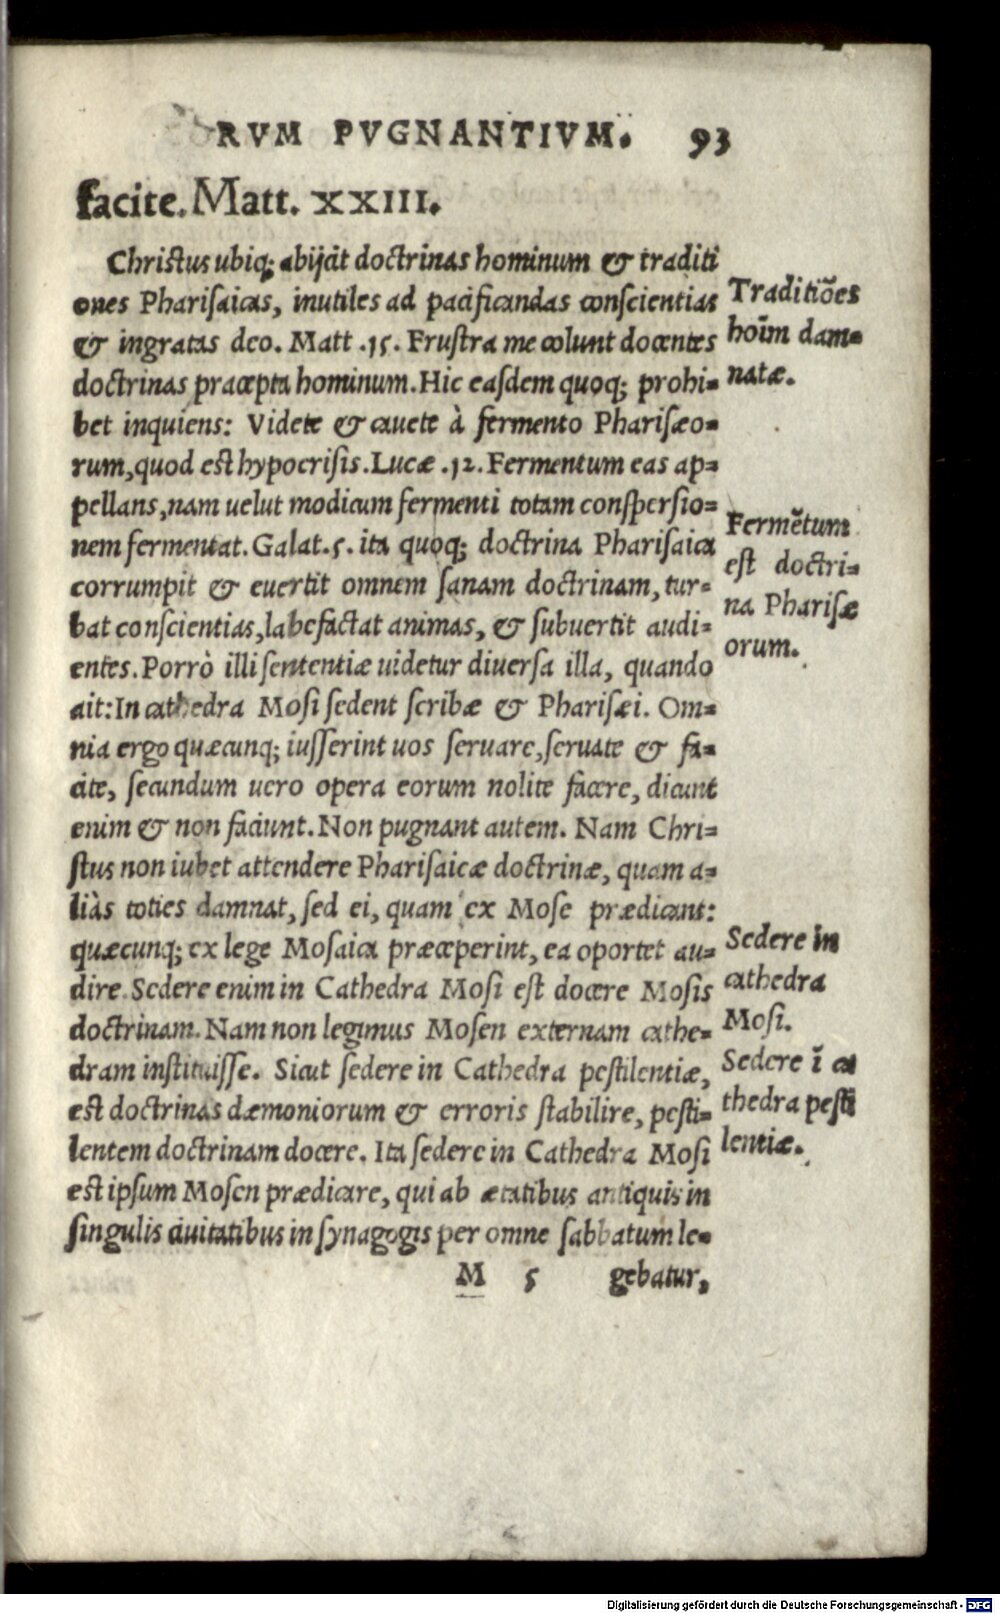 RVM PVGNANTIVM. 93
facite. Matt. XXIII.
Christus ubiq; abijcit doctrinas hominum & traditi
ones Pharisaicas, inutiles ad pacificandas conscientias
& ingratas deo. Matt .15. Frustra me colunt docentes
doctrinas praecepta hominum. Hic easdem quoq; prohi=
bet inquiens: Videte & cauete à fermento Pharisæo=
rum, quod est hypocrisis. Lucæ .12. Fermentum eas ap=
pellans, nam uelut modicum fermenti totam conspersio=
nem fermentat. Galat. 5. ita quoq; doctrina Pharisaica
corrumpit & euertit omnem sanam doctrinam, tur=
bat conscientias, labefactat animas, & subuertit audi=
entes. Porrò illi sententiæ uidetur diuersa illa, quando
ait: In cathedra Mosi sedent scribæ & Pharisæi. Om=
nia ergo quæcunq; iusserint uos seruare, seruate & fa=
cite, secundum uero opera eorum nolite facere, dicunt
enim & non faciunt. Non pugnant autem. Nam Chri=
stus non iubet attendere Pharisaicæ doctrinæ, quam a=
liàs toties damnat, sed ei, quam ex Mose prædicant:
quæcunq; ex lege Mosaica præceperint, ea oportet au=
dire. Sedere enim in Cathedra Mosi est docere Mosis
doctrinam. Nam non legimus Mosen externam cathe=
dram instituisse. Sicut sedere in Cathedra pestilentiæ,
est doctrinas dæmoniorum & erroris stabilire, pesti=
lentem doctrinam docere. Ita sedere in Cathedra Mosi
est ipsum Mosen prædicare, qui ab ætatibus antiquis in
singulis ciuitatibus in synagogis per omne sabbatum le=
M 5 gebatur,
Traditiões
hoīm dam=
natæ.
Fermētum
est doctri=
na Pharisæ
orum.
Sedere in
cathedra
Mosi.
Sedere ī ca
thedra pesti
lentiæ.
Digitalisierung gefördert durch die Deutsche Forschungsgemeinschaft - DFG